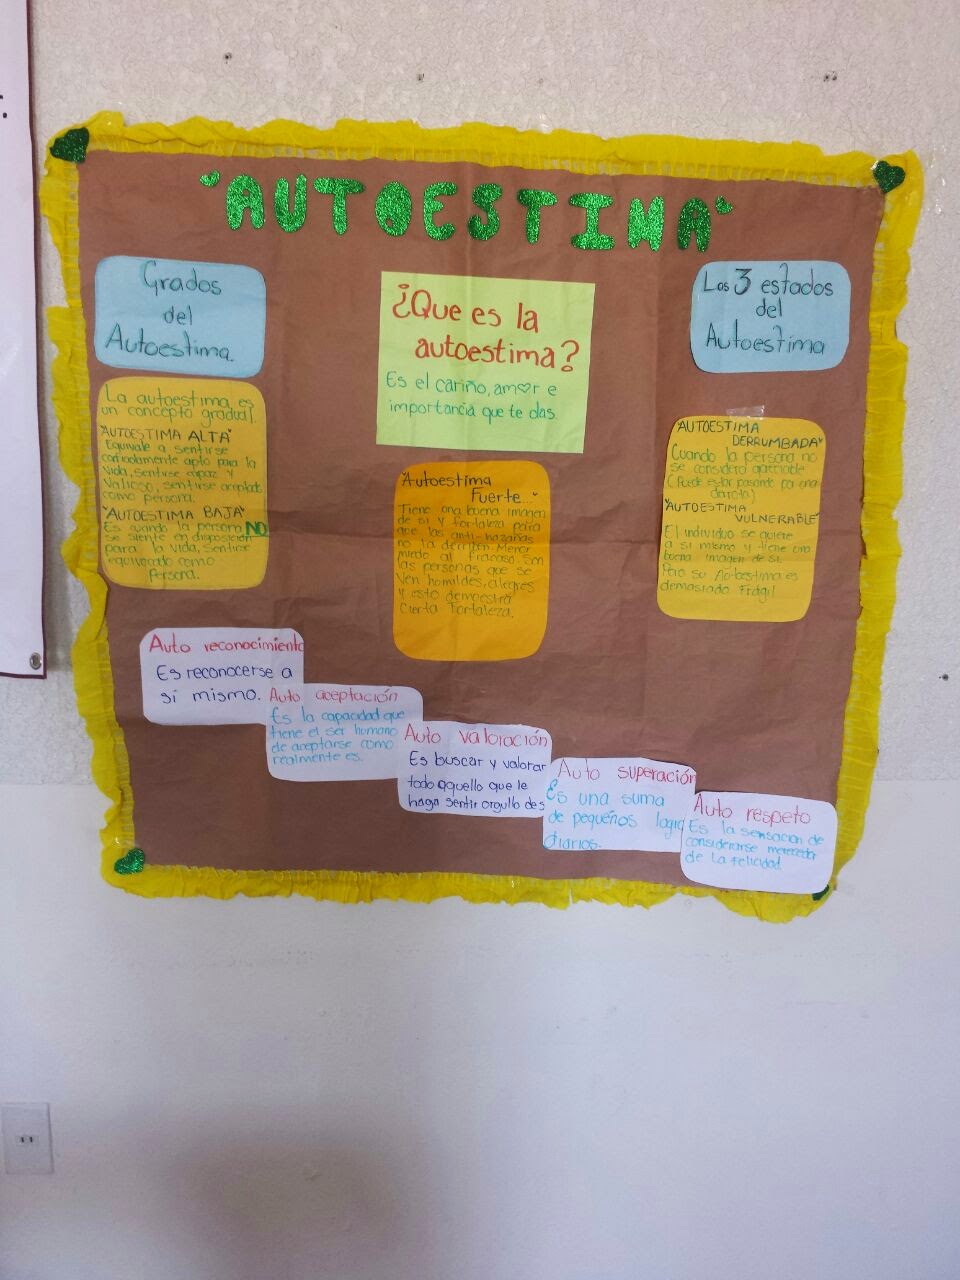 "AUTOESTIMA"
Grados
del
Autoestima.
La autoestima es
un concepto gradual.
"AUTOESTIMA ALTA"
Equivale a sentirse
apto para la
vida, sentirse capaz y
valioso, sentirse aceptado
como persona.
"AUTOESTIMA BAJA"
Es cuando la persona NO
se siente en disposición
para la vida, sentirse
equivocado como
persona.
¿Que es la
autoestima?
Es el cariño, amor e
importancia que te das.
"Autoestima
Fuerte..."
Tiene una buena imagen
de si y fortaleza para
que las anti-hazañas
no la derriben. Menor
miedo al fracaso. Son
las personas que se
ven humildes, alegres
y esto demuestra
cierta fortaleza.
Los 3 estados
del
Autoestima
"AUTOESTIMA
DERRUMBADA"
Cuando la persona no
se considera apreciable
(Puede estar pasando por una
derrota)
"AUTOESTIMA
VULNERABLE"
El individuo se quiere
a si mismo y tiene una
buena imagen de si.
Pero su Autoestima es
demasiado Frágil
Auto reconocimiento
Es reconocerse a
sí mismo.
Auto aceptación
Es la capacidad que
tiene el ser humano
de aceptarse como
realmente es.
Auto valoración
Es buscar y valorar
todo aquello que le
haga sentir orgullo de s
Auto superación
Es una suma
de pequeños logro
diarios.
Auto respeto
Es la sensacion de
considerarse merecedor
de la felicidad.